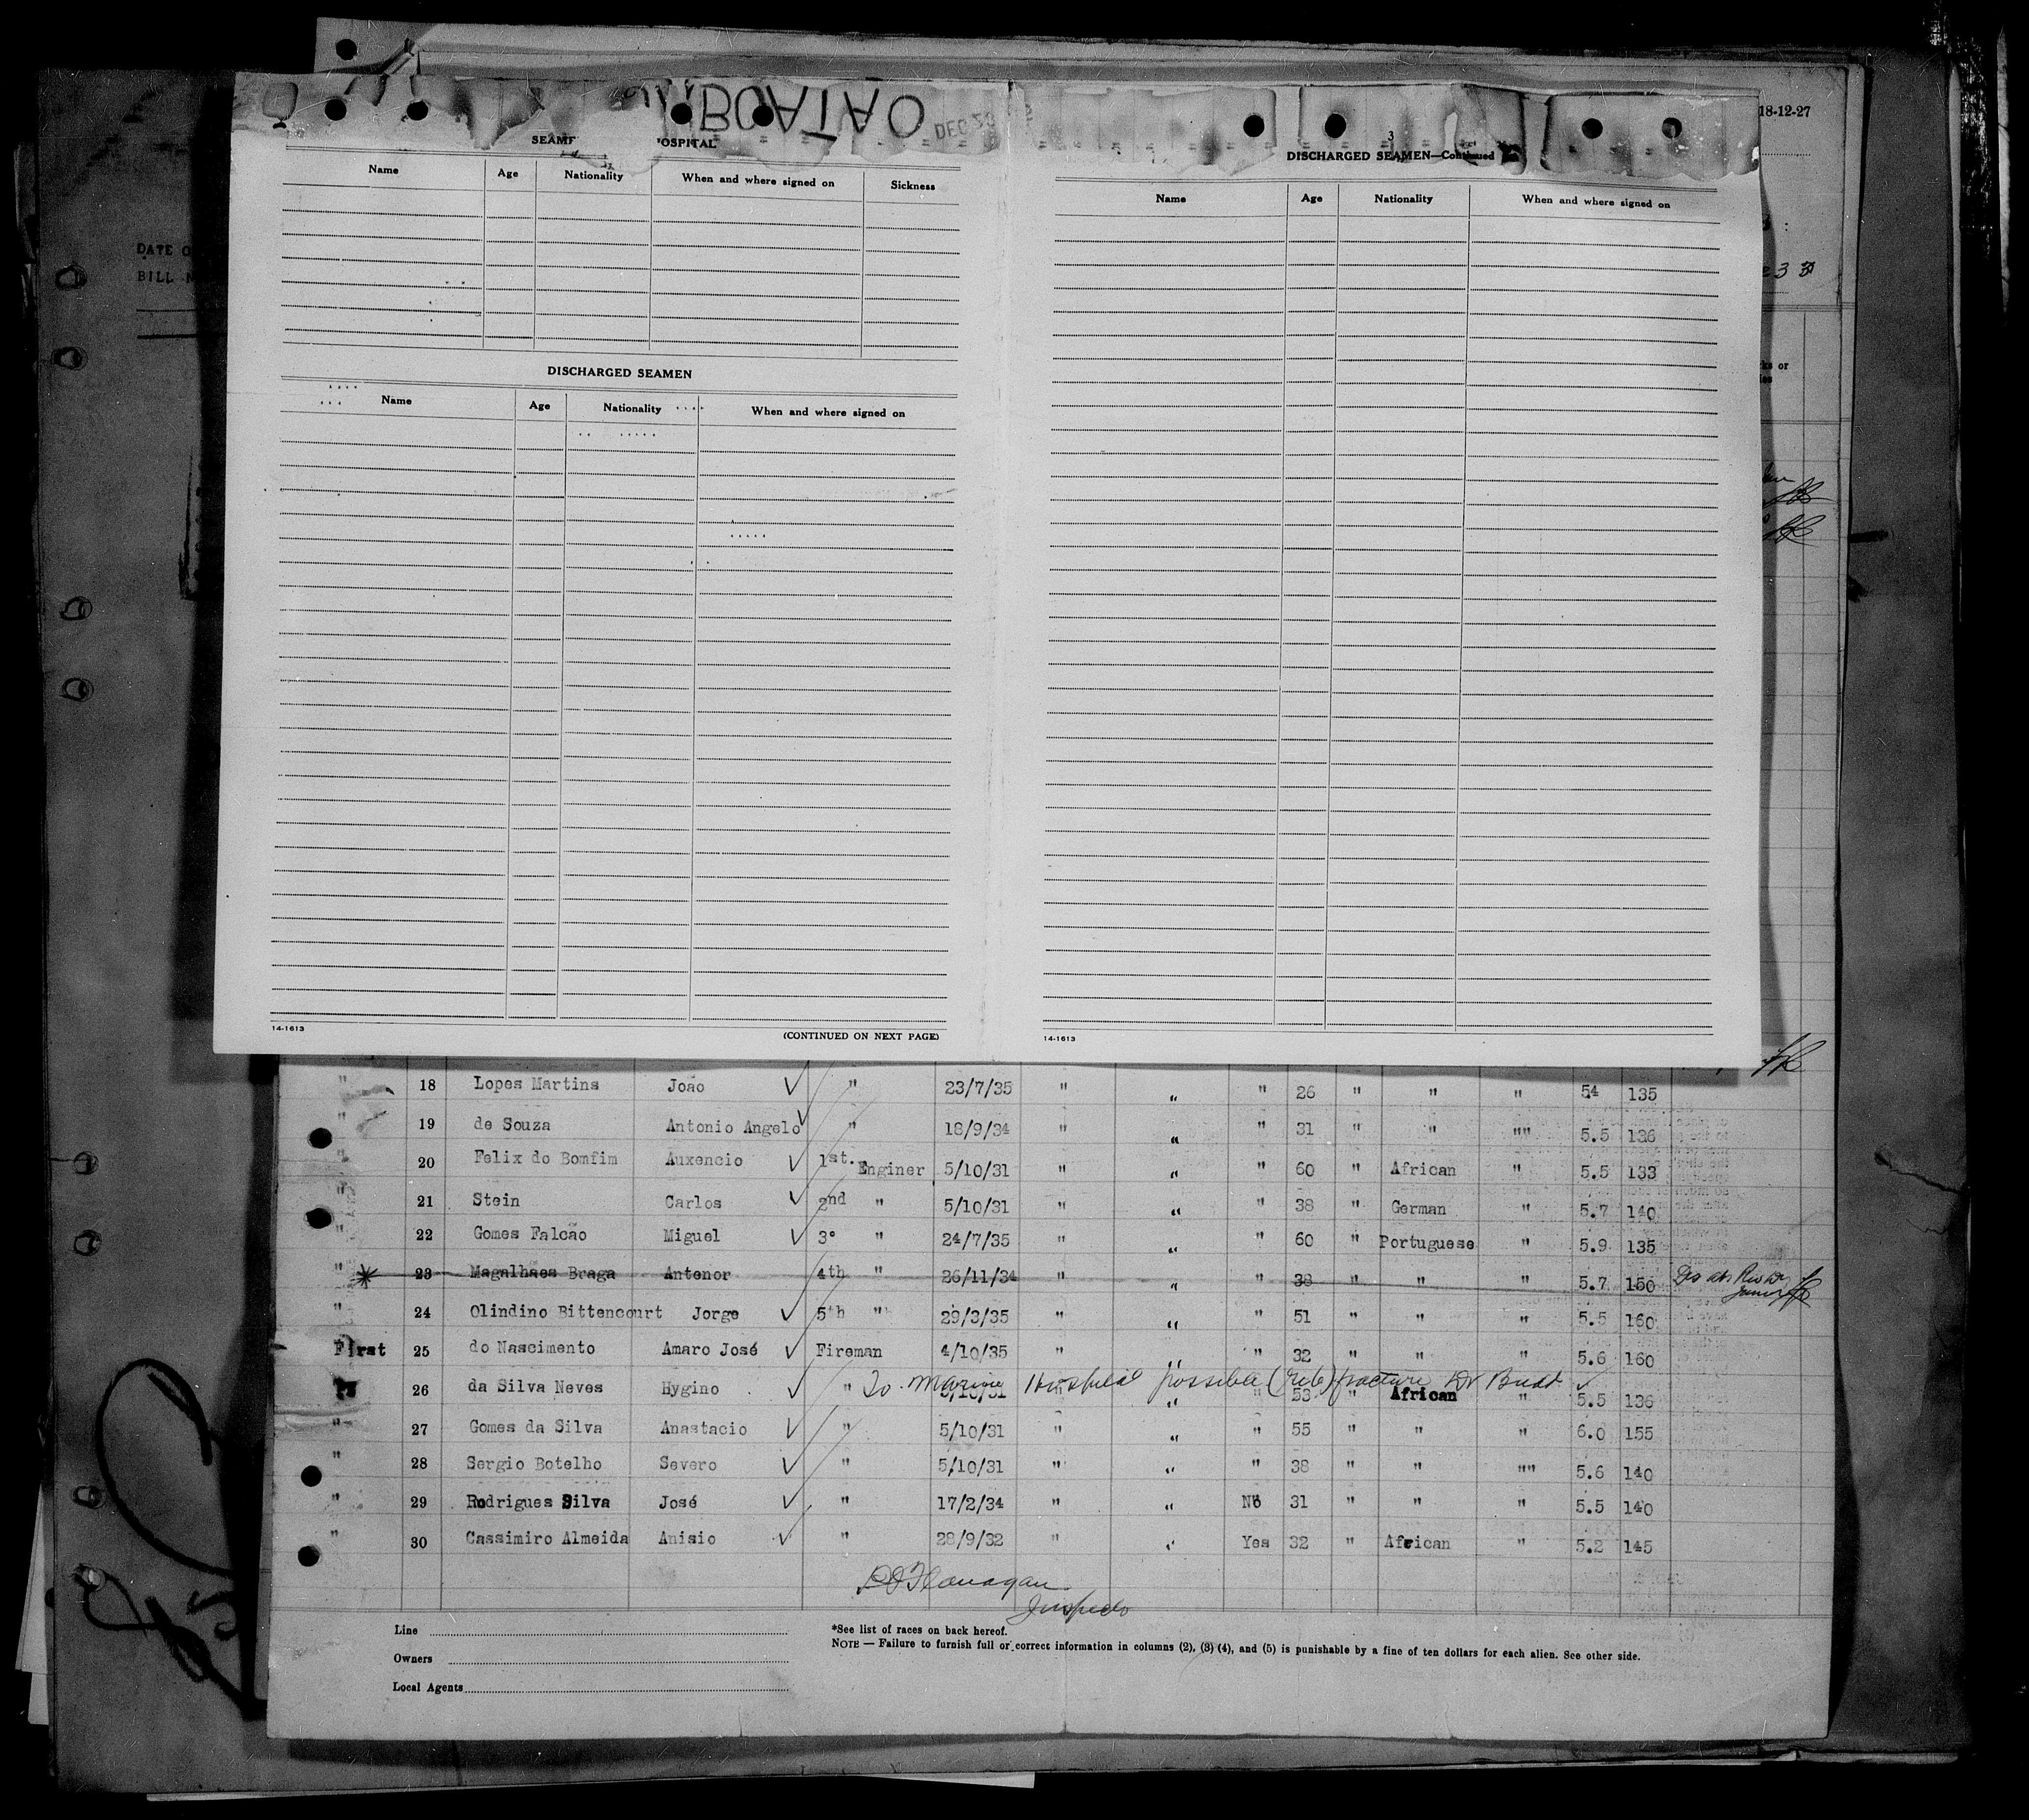 18-12-27
BOATAO
DEC 23
SEAM OSPITAL
Name Age Nationality When and where signed on Sickness
DISCHARGED SEAMEN
Name Age Nationality When and where signed on
14-1613 (CONTINUED ON NEXT PAGE)
3
DISCHARGED SEAMEN—Continued
Name Age Nationality When and where signed on
14-1613
DATE O
BILL
" 18 Lopes Martins João " 23/7/35 " " " 26 " " " 54 135
" 19 de Souza Antonio Angelo " 18/9/34 " " " 31 " " "" 5.5 136
" 20 Felix do Bomfim Auxencio 1st. Enginer 5/10/31 " " " 60 " African " 5.5 133
" 21 Stein Carlos 2nd " 5/10/31 " " " 38 " German " 5.7 140
" 22 Gomes Falcão Miguel 3° " 24/7/35 " " " 60 " Portuguese " 5.9 135
" 23 Magalhaes Braga Antenor 4th " 26/11/34 " " " 38 " " " 5.7 150
" 24 Olindino Bittencourt Jorge 5th " 29/3/35 " " " 51 " " " 5.5 160
First 25 do Nascimento Amaro José Fireman 4/10/35 " " " 32 " " " 5.6 160
To Marine Hospital possible (rib) fracture Dr
26 da Silva Neves Hygino " 5/10/31 " " " 53 " African " 5.5 136
" 27 Gomes da Silva Anastacio " 5/10/31 " " " 55 " " " 6.0 155
" 28 Sergio Botelho Severo " 5/10/31 " " " 38 " " "" 5.6 140
" 29 Rodrigues Silva José " 17/2/34 " " No 31 " " " 5.5 140
" 30 Cassimiro Almeida Anisio " 28/9/32 " " Yes 32 " African " 5.2 145
Flanagan
Inspector
Line
Owners
Local Agents
*See list of races on back hereof.
NOTE — Failure to furnish full or correct information in columns (2), (3) (4), and (5) is punishable by a fine of ten dollars for each alien. See other side.